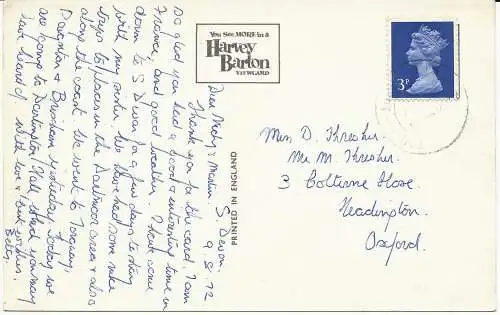 S. Devon.
9.8.72
Dear Molly & Martin,
Thank you for the card. I am
so glad you had a good & interesting time in
France, and good weather. I have come
down to S Devon for a few days to stay
with my sister. We have had some nice
trips to places in the Dartmoor area & also
along the coast. We went to Torquay,
Paignton & Brixham yesterday. Today we
are going to Dartington Hall, which you may
have heard of. With love & best wishes,
Betty.
You See MORE in a
Harvey
Barton
VIEWCARD
PRINTED IN ENGLAND
3P
Miss D. Thresher,
Mr M. Thresher,
3 Colterne Close,
Headington,
Oxford.